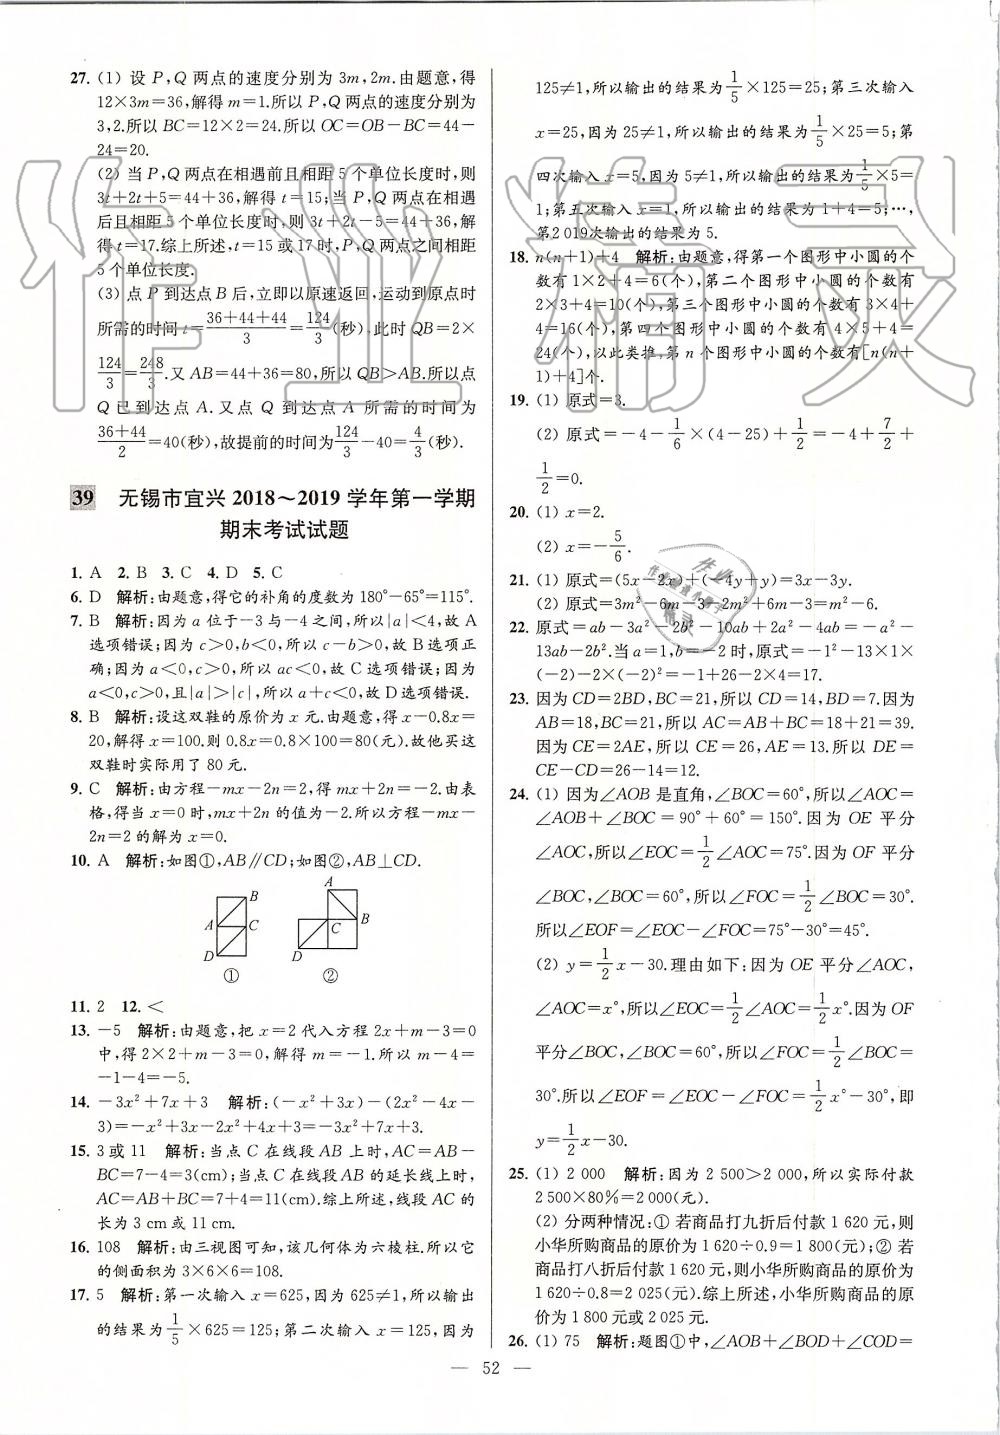 27. (1) 设 P,Q 两点的速度分别为 3m,2m.由题意,得
12×3m=36,解得 m=1.所以 P,Q 两点的速度分别为
3,2.所以 BC=12×2=24.所以 OC=OB-BC=44-
24=20.
(2) 当 P,Q 两点在相遇前且相距 5 个单位长度时,则
3t+2t+5=44+36,解得 t=15;当 P,Q 两点在相遇
后且相距 5 个单位长度时,则 3t+2t-5=44+36,解
得 t=17.综上所述,t=15 或 17 时,P,Q 两点之间相距
5 个单位长度.
(3) 点 P 到达点 B 后,立即以原速返回,运动到原点时
所需的时间 t=(36+44+44)/3=124/3(秒).此时 QB=2×
124/3=248/3.又 AB=44+36=80,所以 QB>AB.所以点
Q 已到达点 A.又点 Q 到达点 A 所需的时间为
(36+44)/2=40(秒),故提前的时间为 124/3-40=4/3(秒).
39 无锡市宜兴 2018~2019 学年第一学期
期末考试试题
1. A 2. B 3. C 4. D 5. C
6. D 解析:由题意,得它的补角的度数为 180°-65°=115°.
7. B 解析:因为 a 位于-3 与-4 之间,所以|a|<4,故 A
选项错误;因为 c>0,b<0,所以 c-b>0,故 B选项正
确;因为 a<0,c>0,所以 ac<0,故 C 选项错误;因为
a<0,c>0,且|a|>|c|,所以 a+c<0,故 D选项错误.
8. B 解析:设这双鞋的原价为 x 元.由题意,得 x-0.8x=
20,解得 x=100.则 0.8x=0.8×100=80(元).故他买这
双鞋时实际用了 80 元.
9. C 解析:由方程-mx-2n=2,得 mx+2n=-2.由表
格,得当 x=0 时,mx+2n 的值为-2.所以方程-mx-
2n=2 的解为 x=0.
10. A 解析:如图①,AB∥CD;如图②,AB⊥CD.
A
B
B
A
C
C
D
D
① ②
11. 2 12. <
13. -5 解析:由题意,把 x=2 代入方程 2x+m-3=0
中,得 2×2+m-3=0,解得 m=-1.所以 m-4=
-1-4=-5.
14. -3x²+7x+3 解析:(-x²+3x)-(2x²-4x-
3)=-x²+3x-2x²+4x+3=-3x²+7x+3.
15. 3 或 11 解析:当点 C 在线段 AB 上时,AC=AB-
BC=7-4=3(cm);当点 C 在线段 AB 的延长线上时,
AC=AB+BC=7+4=11(cm).综上所述,线段 AC 的
长为 3 cm 或 11 cm.
16. 108 解析:由三视图可知,该几何体为六棱柱.所以它
的侧面积为 3×6×6=108.
17. 5 解析:第一次输入 x=625,因为 625≠1,所以输出
的结果为 1/5×625=125;第二次输入 x=125,因为
125≠1,所以输出的结果为 1/5×125=25;第三次输入
x=25,因为 25≠1,所以输出的结果为 1/5×25=5;第
四次输入 x=5,因为 5≠1,所以输出的结果为 1/5×5=
1;第五次输入 x=1,所以输出的结果为 1+4=5;…,
第2 019次输出的结果为 5.
18. n(n+1)+4 解析:由题意,得第一个图形中小圆的个
数有 1×2+4=6(个),第二个图形中小圆的个数有
2×3+4=10(个),第三个图形中小圆的个数有 3×4+
4=16(个),第四个图形中小圆的个数有 4×5+4=
24(个),以此类推,第 n 个图形中小圆的个数有[n(n+
1)+4]个.
19. (1) 原式=3.
(2) 原式=-4-1/6×(4-25)+1/2=-4+7/2+
1/2=0.
20. (1) x=2.
(2) x=-5/6.
21. (1) 原式=(5x-2x)+(-4y+y)=3x-3y.
(2) 原式=3m²-6m-3-2m²+6m-3=m²-6.
22. 原式=ab-3a²-2b²-10ab+2a²-4ab=-a²-
13ab-2b².当 a=1,b=-2 时,原式=-1²-13×1×
(-2)-2×(-2)²=-1+26-2×4=17.
23. 因为 CD=2BD,BC=21,所以 CD=14,BD=7.因为
AB=18,BC=21,所以 AC=AB+BC=18+21=39.
因为 CE=2AE,所以 CE=26,AE=13.所以 DE=
CE-CD=26-14=12.
24. (1) 因为∠AOB 是直角,∠BOC=60°,所以∠AOC=
∠AOB+∠BOC=90°+60°=150°.因为 OE 平分
∠AOC,所以∠EOC=1/2∠AOC=75°.因为 OF 平分
∠BOC,∠BOC=60°,所以∠FOC=1/2∠BOC=30°.
所以∠EOF=∠EOC-∠FOC=75°-30°=45°.
(2) y=1/2x-30.理由如下:因为 OE 平分∠AOC,
∠AOC=x°,所以∠EOC=1/2∠AOC=1/2x°.因为 OF
平分∠BOC,∠BOC=60°,所以∠FOC=1/2∠BOC=
30°.所以∠EOF=∠EOC-∠FOC=1/2x°-30°,即
y=1/2x-30.
25. (1) 2 000 解析:因为 2 500>2 000,所以实际付款
2 500×80%=2 000(元).
(2) 分两种情况:① 若商品打九折后付款 1 620 元,则
小华所购商品的原价为 1 620÷0.9=1 800(元);② 若
商品打八折后付款 1 620 元,则小华所购商品的原价为
1 620÷0.8=2 025(元).综上所述,小华所购商品的原
价为 1 800 元或 2 025 元.
26. (1) 75 解析:题图①中,∠AOB+∠BOD+∠COD=
— 52 —
作业精灵